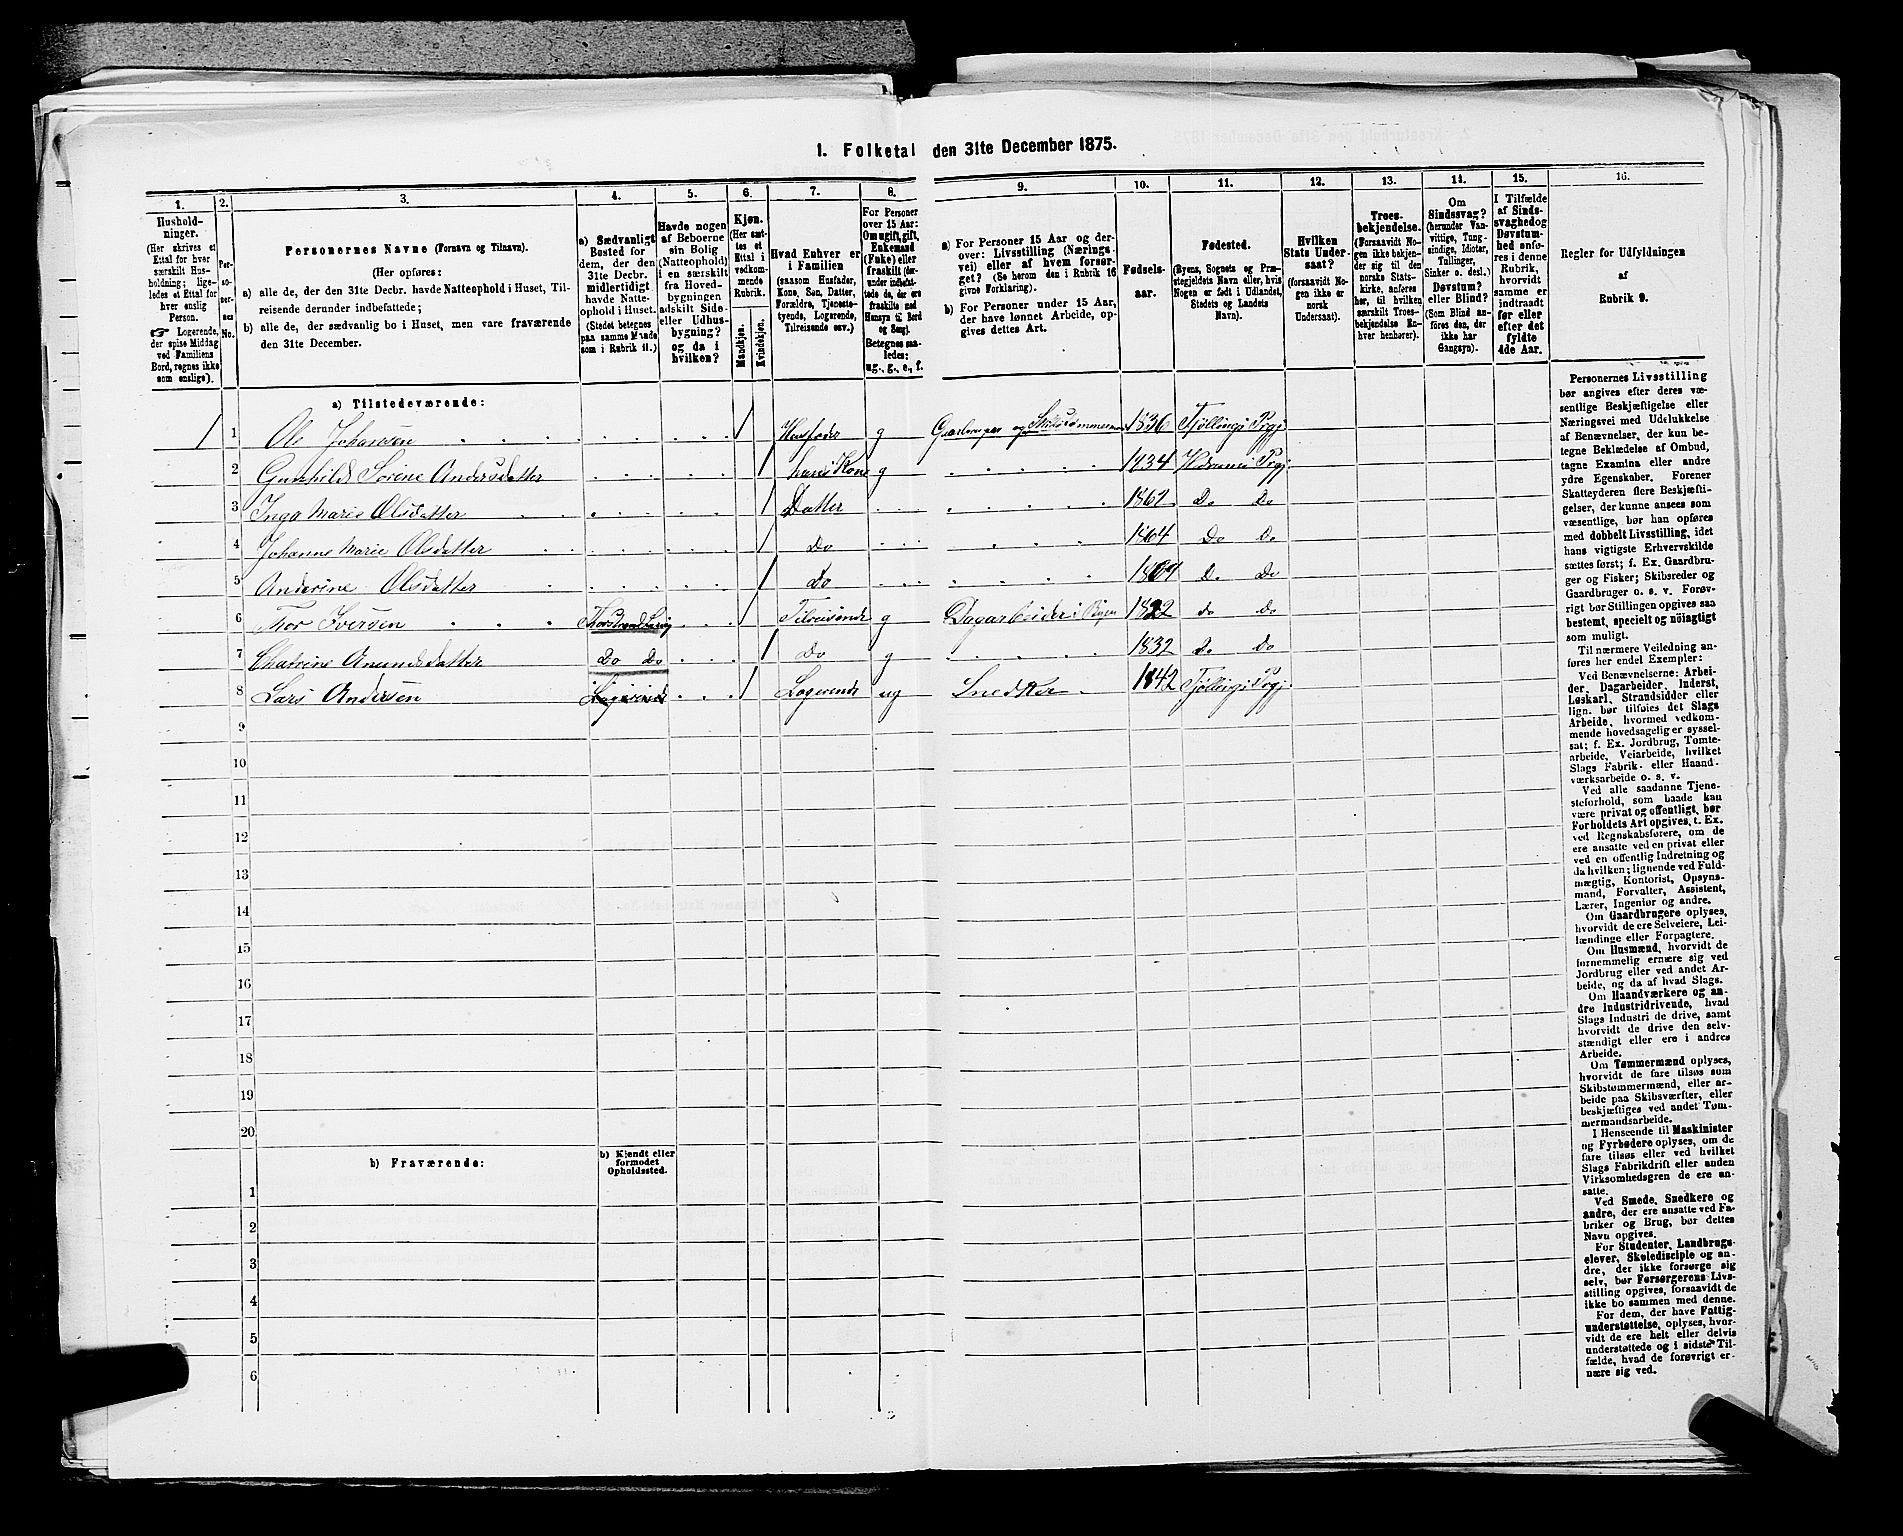 1. Folketal den 31te December 1875.
1. 2. 3. 4. 5. 6. 7. 8. 9. 10. 11. 12. 13. 14. 15. 16.
Hushold-
ninger.
(Her skrives et
Ettal for hver
særskilt Hus-
holdning; lige-
ledes et Ettal for
hver enslig
Person.
☞ Logerende,
der spise Middag
ved Familiens
Bord, regnes ikke
som enslige).
Per-
so-
per-
nes
No.
Personernes Navne (Fornavn og Tilnavn).
(Her opføres:
a) alle de, der den 31te Decbr. havde Natteophold i Huset, Til-
reisende derunder indbefattede;
b) alle de, der sædvanlig bo i Huset, men vare fraværende
den 31te December.
a) Sædvanligt
Bosted for
dem, der den
31te Decbr.
midlertidigt
havde Natte-
ophold i Huset.
(Stedet betegnes
paa samme Maade
som i Rubrik 11.)
Havde nogen
af Beboerne
sin Bolig
(Natteophold)
i en særskilt
fra Hoved-
bygningen
adskilt Side-
eller Udhus-
bygning?
og da i
hvilken?
Kjøn.
(Her sæt-
tes et
Ettal i
vedkom-
mende
Rubrik.
Mandkjøn.
Kvindekjøn.
Hvad Enhver er
i Familien
(saasom Husfader,
Kone, Søn, Datter,
Forældre, Tjeneste-
tyende, Logerende,
Tilreisende osv.)
For Personer
over 15 Aar:
Om ugift, gift,
Enkemand
(Enke) eller
fraskilt (der-
under indbefat-
tede de, der ere
fraskilte med
Hensyn til Bord
og Seng).
Betegnes saa-
ledes:
ug., g., e., f.
a) For Personer 15 Aar og der-
over: Livsstilling (Nærings-
vei) eller af hvem forsør-
get? (Se herom den i Rubrik 16
givne Forklaring).
b) For Personer under 15 Aar,
der have lønnet Arbeide, op-
gives dettes Art.
Fødsels-
aar.
Fødested.
(Byens, Sognets og Præ-
stegjeldets Navn eller, hvis
Nogen er født i Udlandet,
Stedets og Landets
Navn).
Hvilken
Stats Under-
saat?
(forsaavidt No-
gen ikke er
norsk
Undersaat).
Troes-
bekjendelse.
(Forsaavidt No-
gen ikke bekjen-
der sig til den
norske Stats-
kirke, anføres
her, til hvilken
særskilt Troes-
bekjendelse En-
hver henhører).
Om
Sindssvag?
(herunder Van-
vittige, Tung-
sindige, Idioter,
Tullinger,
Sinker o. desl.)
Døvstum?
eller Blind?
(Som Blind an-
føres den, der
ikke har
Gangsyn).
I Tilfælde
af Sinds-
svaghed og
Døvstum-
hed anfø-
res i denne
Rubrik,
hvorvidt
samme er
indtraadt
før eller
efter det
fyldte
4de Aar.
Regler for Udfyldningen
af
Rubrik 9.
a) Tilstedeværende:
1 1 Ole Johansen 1 Husfader g Gaardbruger og Skibstømmermand 1836 Tjølling Prgj
2 Gunhild Sørine Andersdatter 1 hans Kone g 1834 Hedrum Prgj
3 Inga Marie Olsdatter 1 Datter 1862 Do Do
4 Johanne Marie Olsdatter 1 Do 1864 Do Do
5 Anderine Olsdatter 1 Do Do Do
6 Thor Iversen 1 Tilreisende g Dagarbeider i Byen Do Do
7 Do Do 1 Do g 1832 Do Do
8 Lars Andersen Logerende 1 Logerende ug Snedker 1842 Tjølling Prgj
9
10
11
12
13
14
15
16
17
18
19
20
b) Fraværende:
b) Kjendt eller
formodet
Opholdssted.
1
2
3
4
5
6
Personernes Livsstilling
bør angives efter deres væ-
sentlige Beskjæftigelse eller
Næringsvei med Udelukkelse
af Benævnelser, der kun be-
tegne Beklædelse af Ombud,
tagne Examina eller andre
ydre Egenskaber. Forener
Skatteyderen flere Beskjæfti-
gelser, der kunne ansees som
væsentlige, bør han opføres
med dobbelt Livsstilling, idet
hans vigtigste Erhvervskilde
sættes først; f. Ex. Gaardbru-
ger og Fisker; Skibsreder og
Gaardbruger o. s. v. Forøv-
rigt bør Stillingen opgives saa
bestemt, specielt og nøiagtigt
som muligt.
Til nærmere Veiledning an-
føres her endel Exempler:
Ved Benævnelserne: Arbei-
der, Dagarbeider, Inderst,
Løskarl, Strandsidder eller
lign. bør tilføies det Slags
Arbeide, hvormed vedkom-
mende hovedsagelig er syssel-
sat; f. Ex. Jordbrug, Tomte-
arbeide, Veiarbeide, hvilket
Slags Fabrik- eller Haand-
værksarbeide o. s. v.
Ved alle saadanne Tjene-
steforhold, som baade kan
være privat og offentligt, bør
Forholdets Art opgives, t. Ex.
ved Regnskabsførere, om de
ere ansatte ved en privat eller
ved en offentlig Indretning og
da hvilken; lignende ved Fuld-
mægtig, Kontorist, Opsyns-
mand, Forvalter, Assistent,
Lærer, Ingeniør og andre.
Om Gaardbrugere oplyses,
hvorvidt de ere Selveiere, Lei-
lændinge eller Forpagtere.
Om Husmænd, hvorvidt de
fornemmelig ernære sig ved
Jordbrug eller ved andet Ar-
beide, og da af hvad Slags.
Om Haandværkere og an-
dre Industridrivende, hvad
Slags Industri de drive, samt
hvorvidt de drive den selv-
stændigt eller ere i andres
Arbeide.
Om Tømmermænd oplyses,
hvorvidt de fare tilsøs som
Skibstømmermænd, eller ar-
beide paa Skibsværfter, eller
beskjæftiges ved andet Tøm-
mermandsarbeide.
I Henseende til Maskinister
og Fyrbødere oplyses, om de
fare tilsøs eller ved hvilket
Slags Fabrikdrift eller anden
Virksomhedsgren de ere an-
satte.
Ved Smede, Snedkere og
andre, der ere ansatte ved Fa-
briker og Brug, bør dettes
Navn opgives.
For Studenter, Landbrugs-
elever, Skoledisciple og an-
dre, der ikke forsørge sig
selv, bør Forsørgerens Livs-
stilling opgives, forsaavidt de
ikke bo sammen med denne.
For dem, der have Fattig-
understøttelse, oplyses, hvor-
vidt de ere helt eller delvis
understøttede og i sidste Til-
fælde, hvad de forøvrigt er-
nære sig ved.